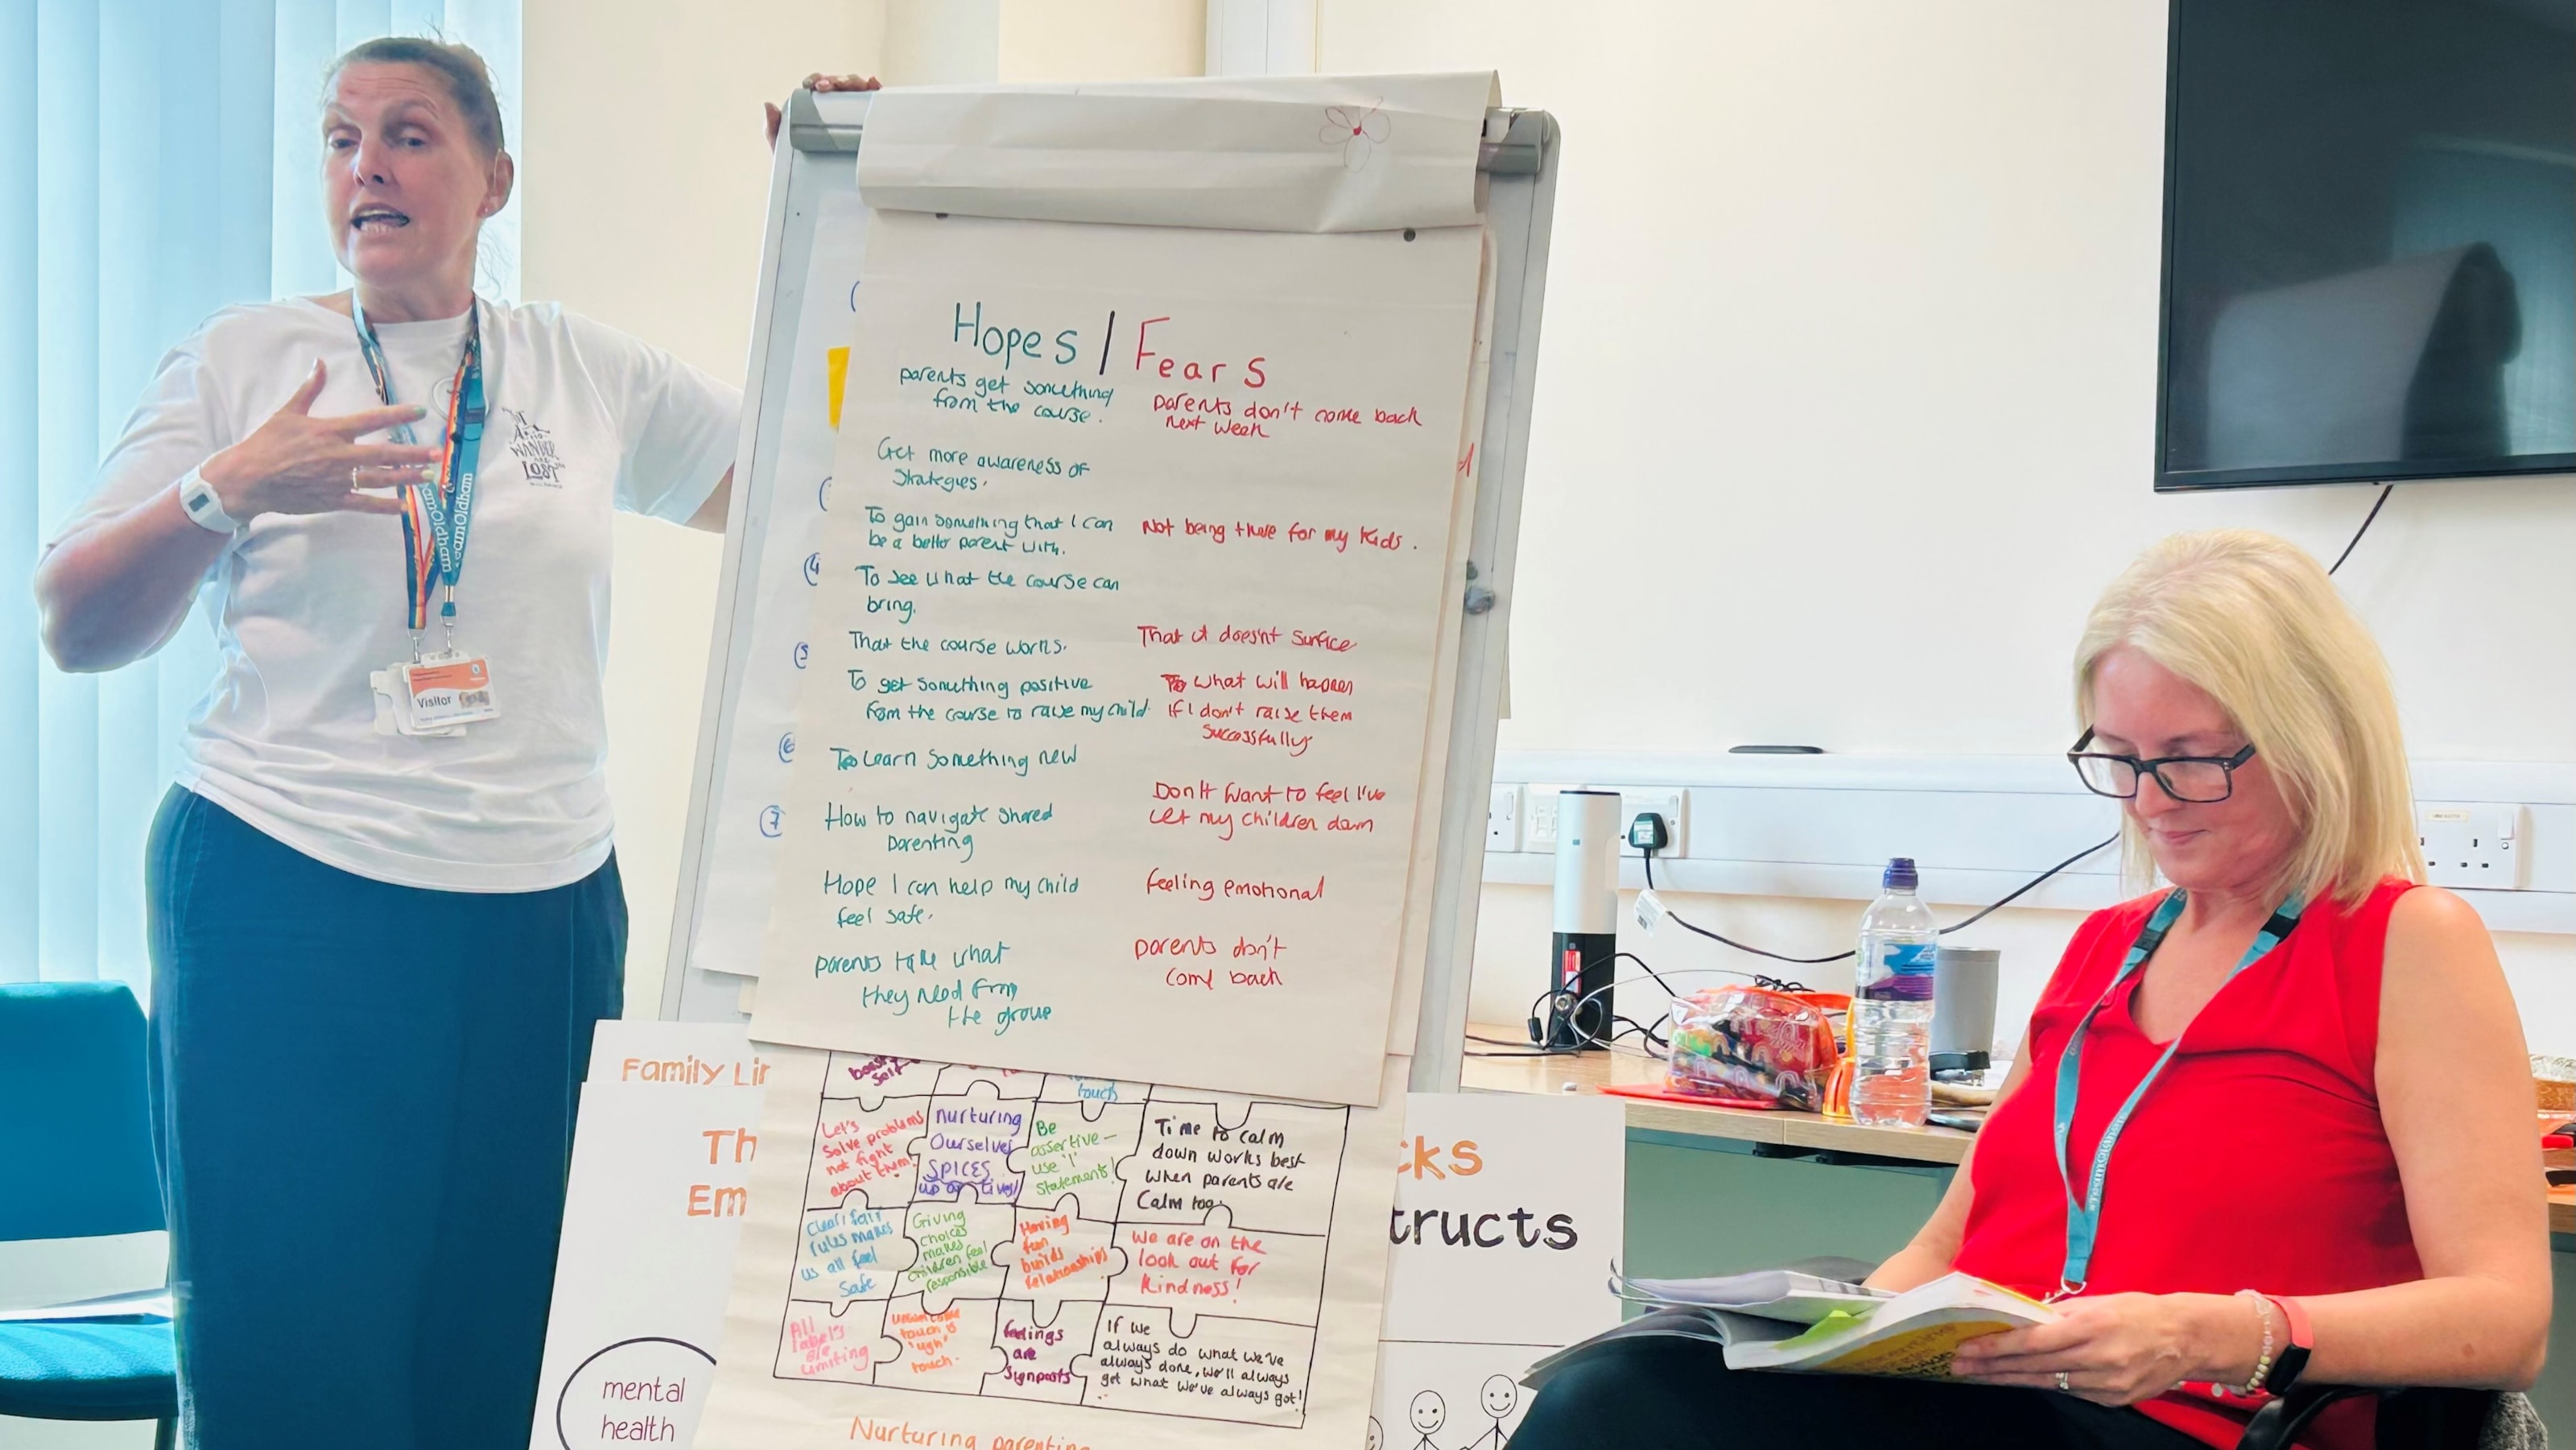 Hopes / Fears
parents get something
from the course.
parents don't come back
next week
Get more awareness of
Strategies.
To gain something that I can
be a better parent with.
Not being there for my kids.
To see what the course can
bring.
That the course works.
That it doesn't surface
To get something positive
from the course to raise my child.
To what will happen
If I don't raise them
Successfully
To Learn something new
How to navigate shared
parenting
Don't want to feel I've
let my children down
Hope I can help my child
feel safe.
feeling emotional
parents take what
they need from
the group
parents don't
come back
4
5
6
7
touch
Let's
Solve problems
not fight
about them!
nurturing
Ourselves
SPICES
up
Be
assertive -
use 'I'
statements!
Time to calm
down works best
when parents are
Calm too
Clear, fair
rules makes
us all feel
Safe
Giving
choices
makes
children feel
responsible
Having
fun
builds
relationships
We are on the
look out for
kindness!
All
labels
are
limiting
touch
'ugh'
touch.
feelings
are
Signposts
If we
always do what we've
always done, we'll always
get what we've always got!
Nurturing parenting
Family Lin
Th
Em
mental
health
cks
tructs
WANDER
LOST
Visitor
TeamOldham
TeamOldham
#TeamOldham